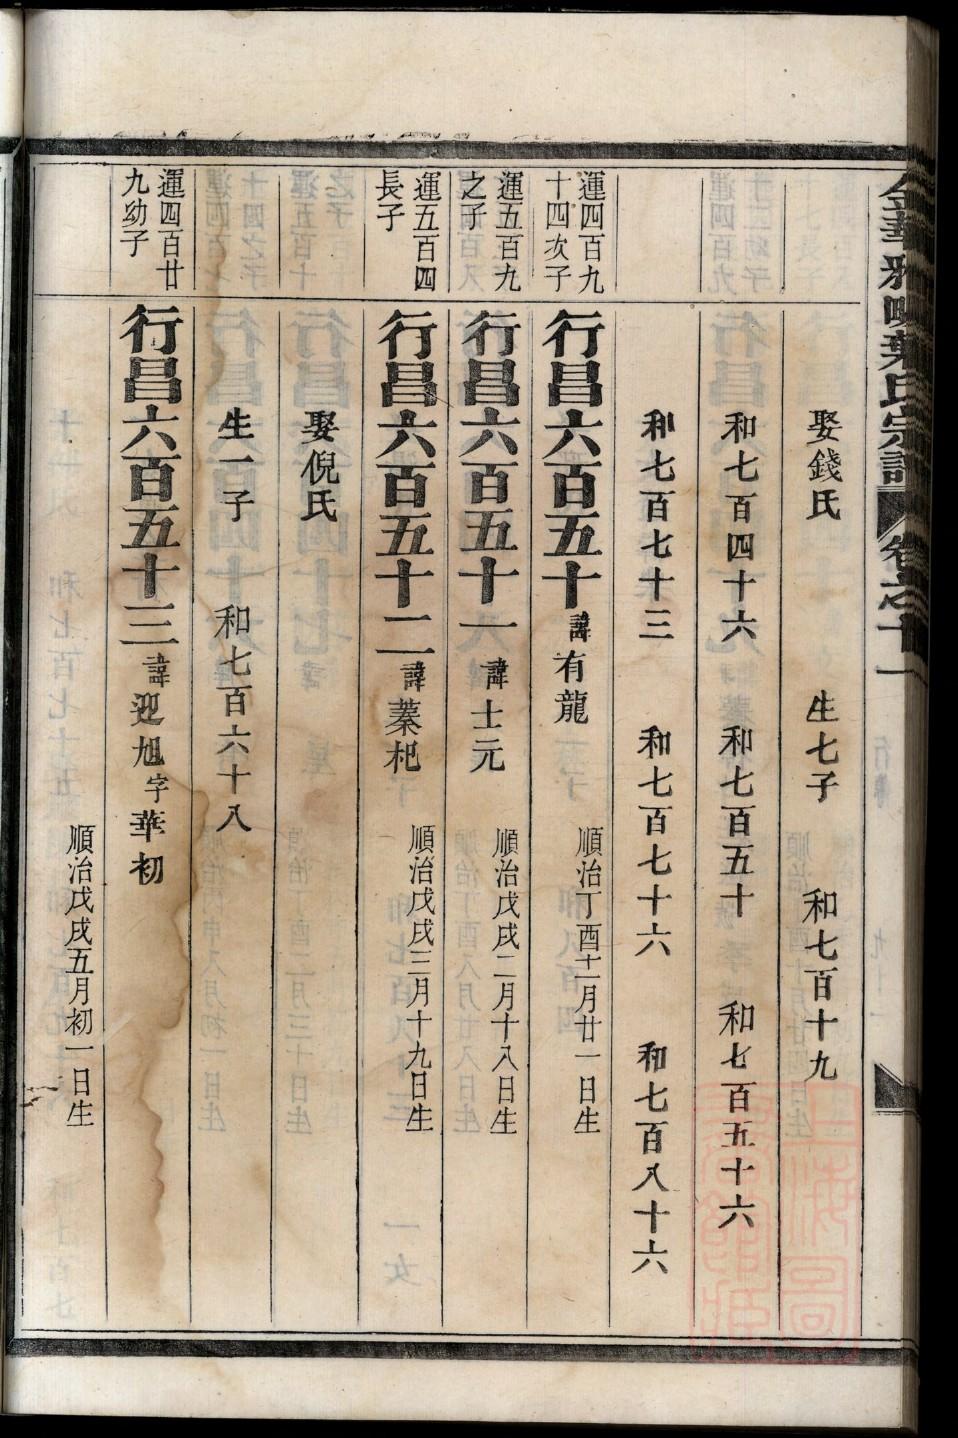 金華
葉氏宗譜 卷之十一
娶錢氏 生七子 和七百十九
和七百四十六 和七百五十 和七百五十六
和七百七十三 和七百七十六 和七百八十六
運四百九十四次子
行昌六百五十 諱有龍 順治丁酉十一月廿一日生
運五百九之子
行昌六百五十一 諱士元 順治戊戌二月十八日生
運五百四長子
行昌六百五十二 諱蓁杞 順治戊戌三月十九日生
娶倪氏
生一子 和七百六十八
運四百廿九幼子
行昌六百五十三 諱迎旭字華初
順治戊戌五月初一日生